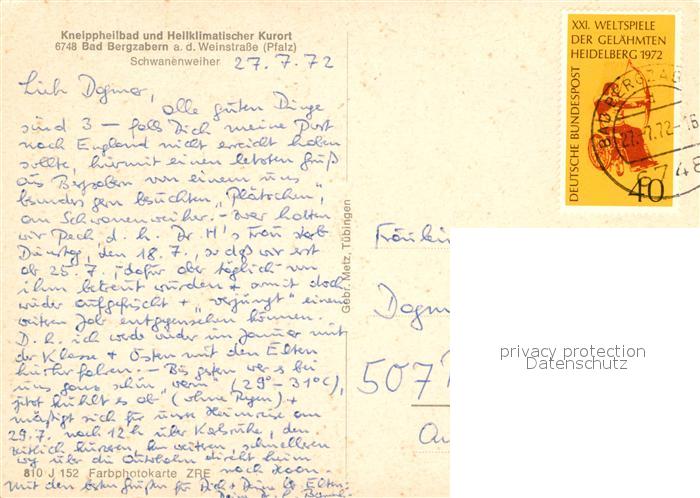 Kneippheilbad und Heilklimatischer Kurort
6748 Bad Bergzabern a. d. Weinstraße (Pfalz)
Schwanenweiher
27.7.72
Liebe Dagmar,
alle guten Dinge
sind 3 – falls Dich meine Post
nach England nicht erreicht haben
sollte, hiermit einen letzten Gruß
aus Bergzabern von einem uns
besonders gern besuchten "Plätzchen",
am Schwanenweiher. – Zwar hatten
wir Pech, d. h. Dr H's Frau starb
Dienstag, den 18.7., so daß wir erst
ab 25.7., dafür aber täglich von
ihm betreut wurden + somit doch
wieder aufgefrischt + "verjüngt" einem
weiteren Jahr entgegensehen können.
D. h. ich werde wieder im Januar mit
der Klasse + Ostern mit den Eltern
hierher fahren. – Bis gestern war es bei
uns ganz schön "warm" (29°–31°C),
jetzt kühlt es ab (ohne Regen) +
mäßigt sich für unsre Heimreise am
29.7. nach 12h über Karlsruhe, den
zeitlich kürzeren, km weiteren, schnelleren
Weg über die Autobahn direkt heim
nach
Mit den besten Grüßen für Dich + Deine lb. Eltern
810 J 152 Farbphotokarte ZRE
Gebr. Metz, Tübingen
XXI. WELTSPIELE
DER GELÄHMTEN
HEIDELBERG 1972
DEUTSCHE BUNDESPOST
40
BAD BERGZAB
27.-7.72-16
6748
Fräulein
Dagm
507
privacy protection
Datenschutz